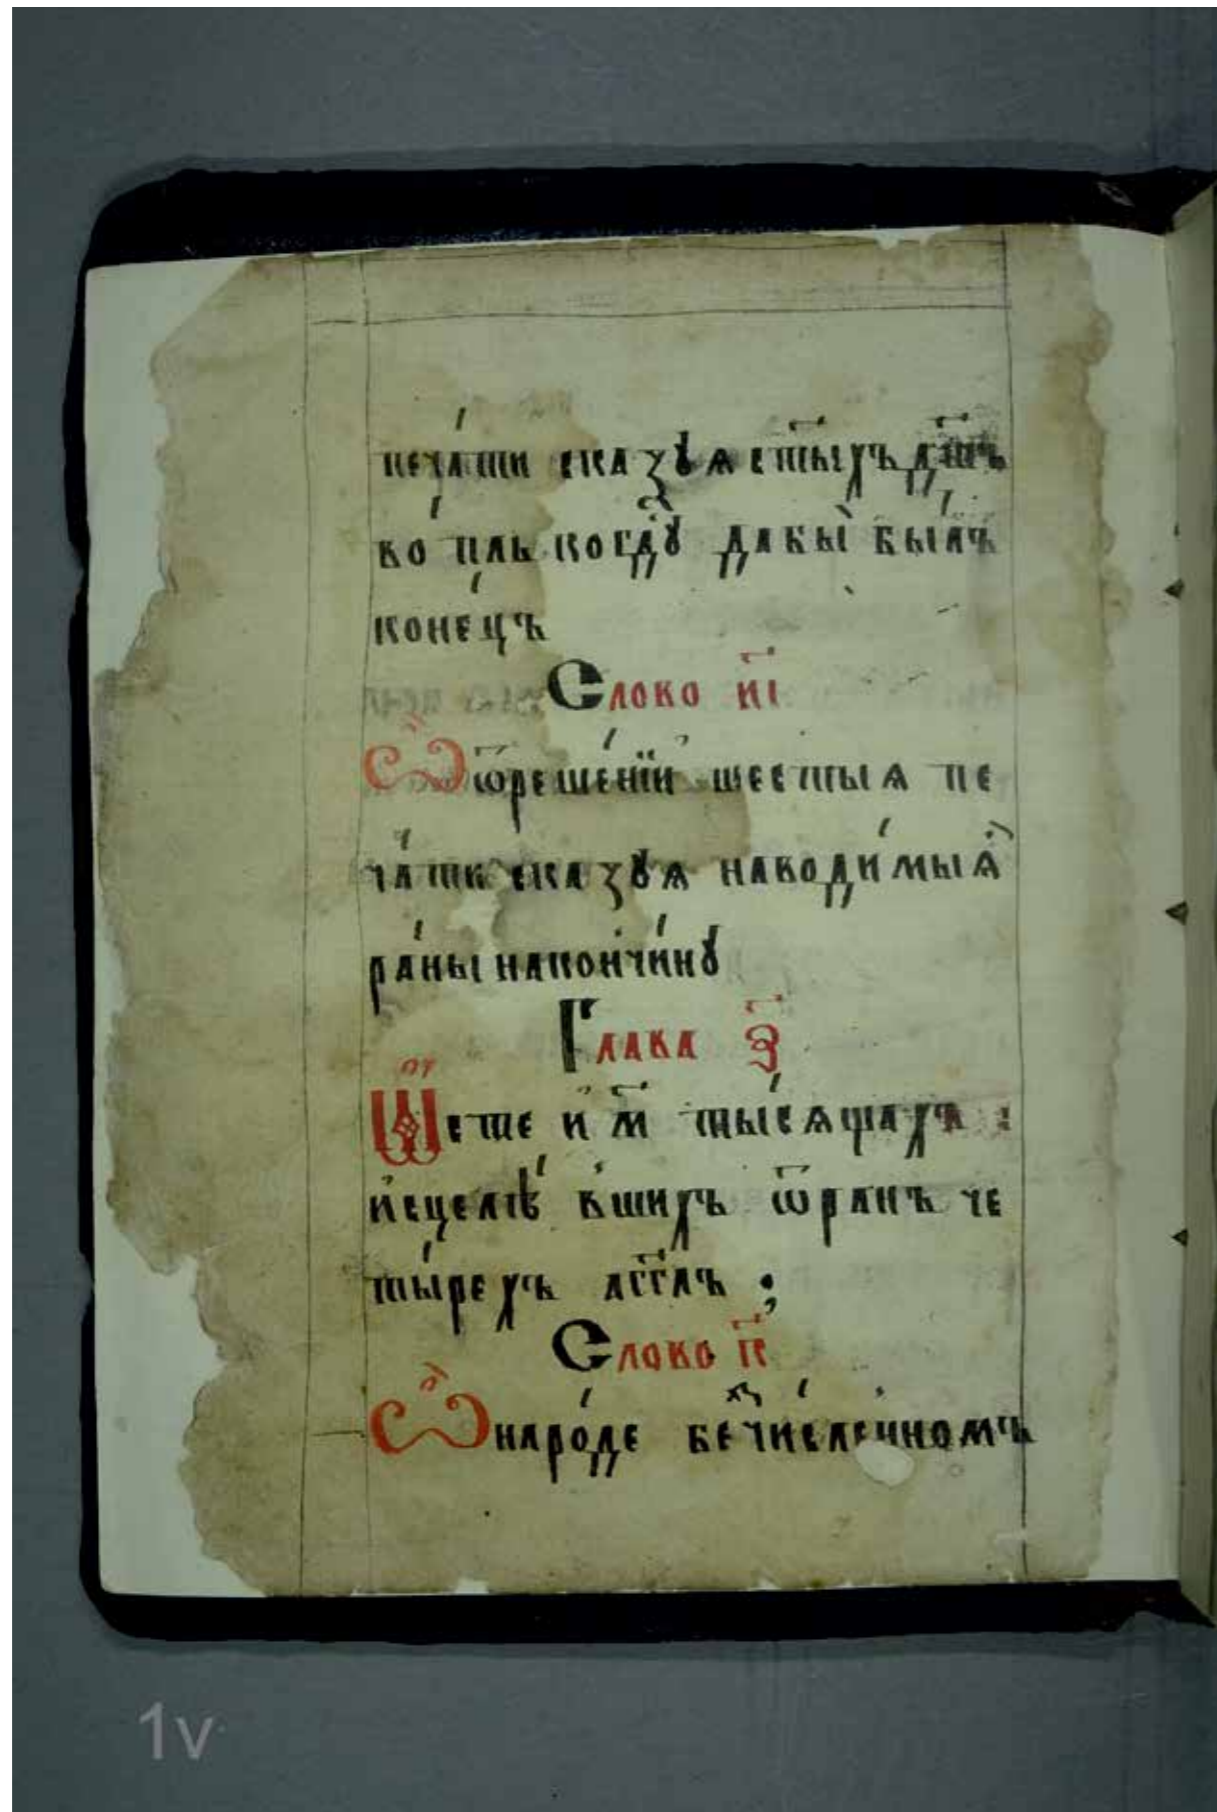 печа́ти сказꙋѧ ст҃ыхъ дш҃ъ
во́пль когдꙋ̀ дабы̀ бы́лъ
коне́цъ
Слово и҃і
Ѡ ѿреше́нїи шестыѧ пе
ча́ти сказꙋѧ наводи́мыѧ
ра́ны накончи́нꙋ
Глава з҃
Ѡ сте и҆ м҃ ты́сѧщахъ :
и҆сцелѣ́ вшихъ ѿранъ че
ты́рехъ а҃гглъ ;
Слово к҃
Ѡ наро́де беⷥчи́сленномъ
1v